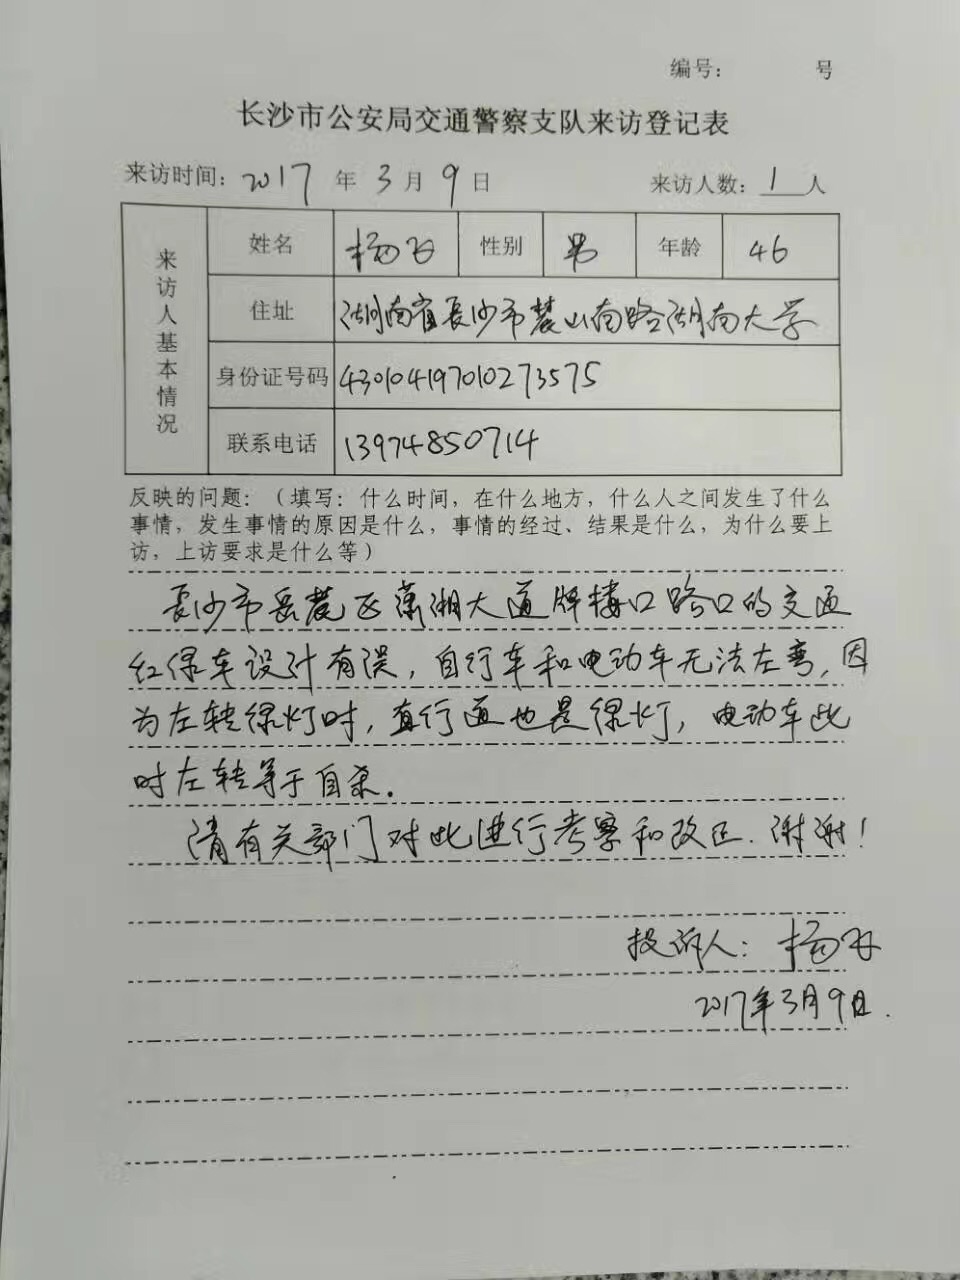 编号： 号
长沙市公安局交通警察支队来访登记表
来访时间：2017 年 3 月 9 日 来访人数：1 人
来访人基本情况
姓名 杨飞 性别 男 年龄 46
住址 湖南省长沙市麓山南路湖南大学
身份证号码 430104197010273575
联系电话 13974850714
反映的问题：（填写：什么时间，在什么地方，什么人之间发生了什么
事情，发生事情的原因是什么，事情的经过、结果是什么，为什么要上
访，上访要求是什么等）
长沙市岳麓区潇湘大道牌楼口路口的交通
红绿车设计有误，自行车和电动车无法左弯，因
为左转绿灯时，直行道也是绿灯，电动车此
时左转等于自杀.
请有关部门对此进行考察和改正.谢谢！
投诉人：杨飞
2017年3月9日.